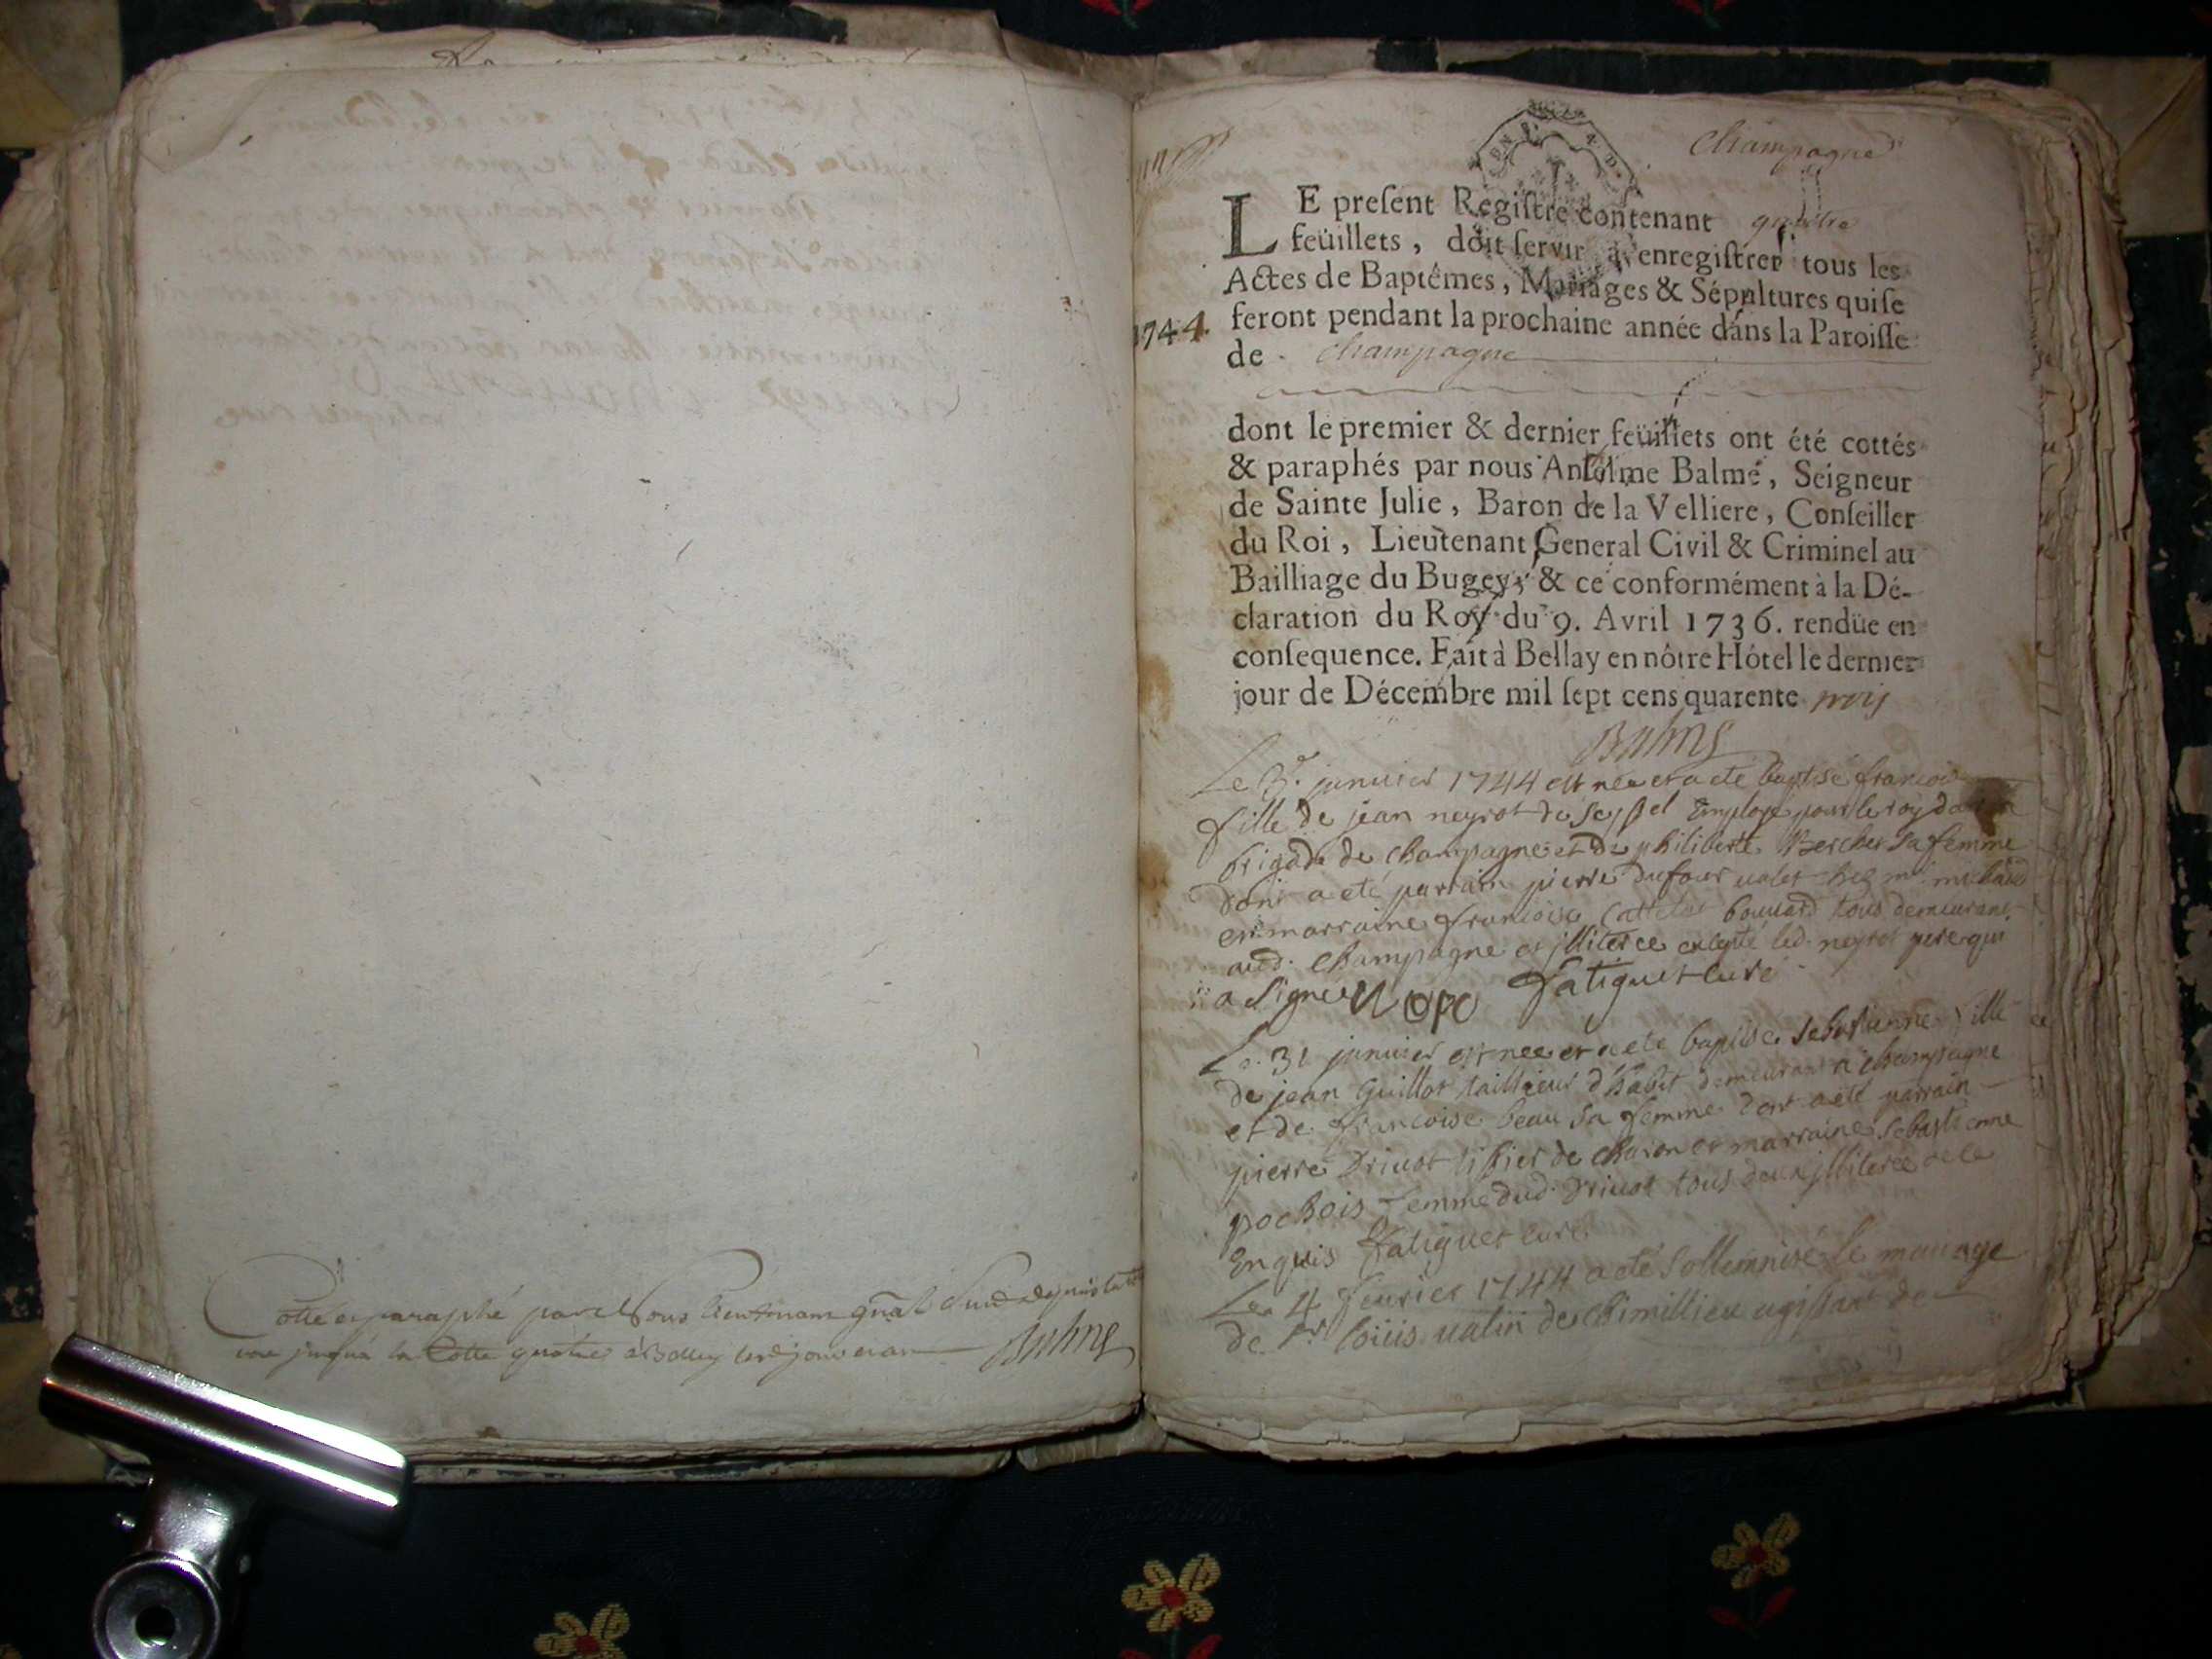 Cotté et paraphé par Nous Lieutenant gñal
jusqu'à la Cotte quatre à Belley
Balme
Champagne
LE preſent Regiſtre contenant quattre
feüillets, doit ſervir à enregiſtrer tous les
Actes de Baptêmes, Mariages & Sépultures qui ſe
1744. feront pendant la prochaine année dans la Paroiſſe
de Champagne
dont le premier & dernier feüillets ont été cottés
& paraphés par nous Anſelme Balme, Seigneur
de Sainte Julie, Baron de la Velliere, Conſeiller
du Roi, Lieutenant General Civil & Criminel au
Bailliage du Bugey, & ce conformément à la Dé-
claration du Roy du 9. Avril 1736. rendüe en
conſequence. Fait à Bellay en nôtre Hótel le dernier
jour de Décembre mil ſept cens quarente trois
Balme
Le 3e. janvier 1744 est nee et a eté baptisé francoise
fille de jean neyrot de Seyssel Employé pour le roy dans la
brigade de champagne et de philiberte Bercher sa femme
dont a eté parrain pierre Dufour valet chez mr.
et marraine francoise bouvard tous demeurans
aud. champagne et jlliterée excepté led. neyrot pere qui
a signé Fatiguet curé
Le 31 janvier est nee et a eté baptisé Sebastienne fille
de jean Guillot tailleur d'habit demeurant a champagne
et de francoise beau sa femme dont a eté parrain
pierre Drivot tissier de charon et marraine sebastienne
pochois femme dud. Drivot tous deux jlliteree de ce
Enquis Fatiguet curé
Le 4 fevrier 1744 a eté sollemnisé le mariage
de Sr. loüis valin de chimillieu agissant de